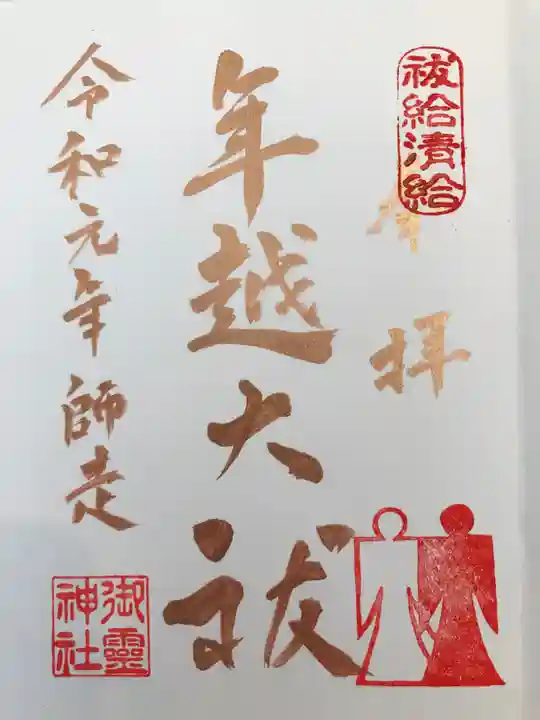 祓給清給
奉拝
年越大祓
令和元年師走
御靈神社